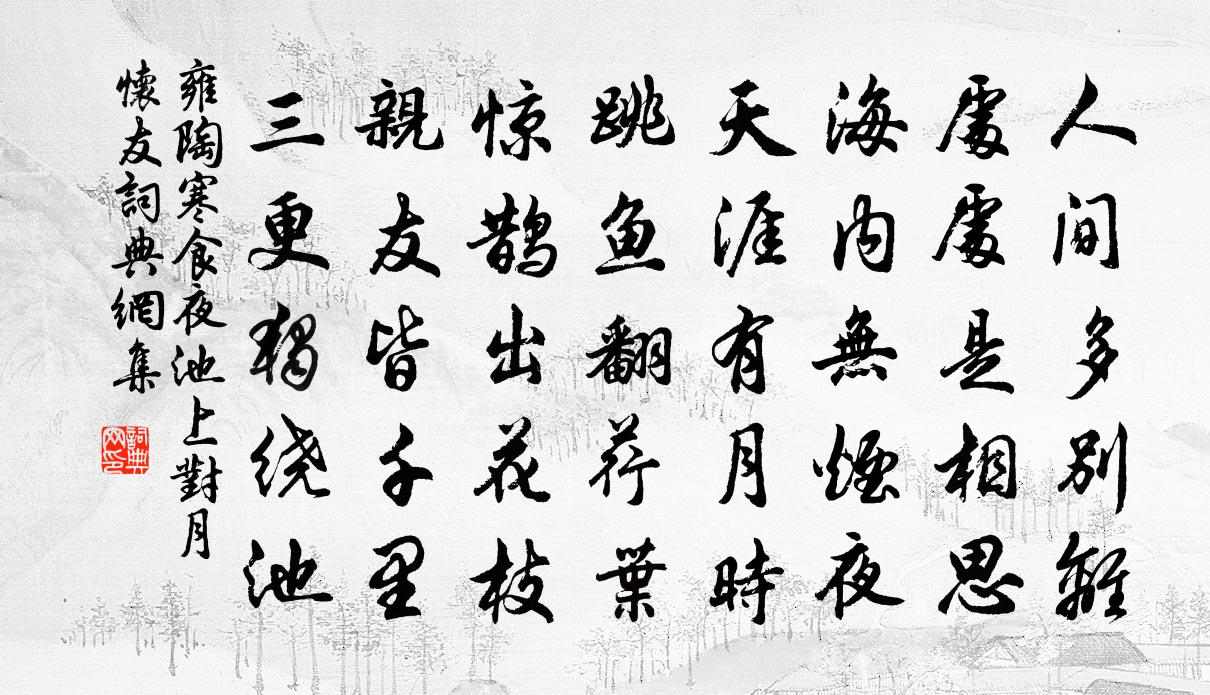 人间多别離
處處是相思
海内無煙夜
天涯有月時
跳鱼翻荇葉
惊鹊出花枝
親友皆千里
三更獨绕池
雍陶寒食夜池上對月
懷友詞典網集
詞典网印